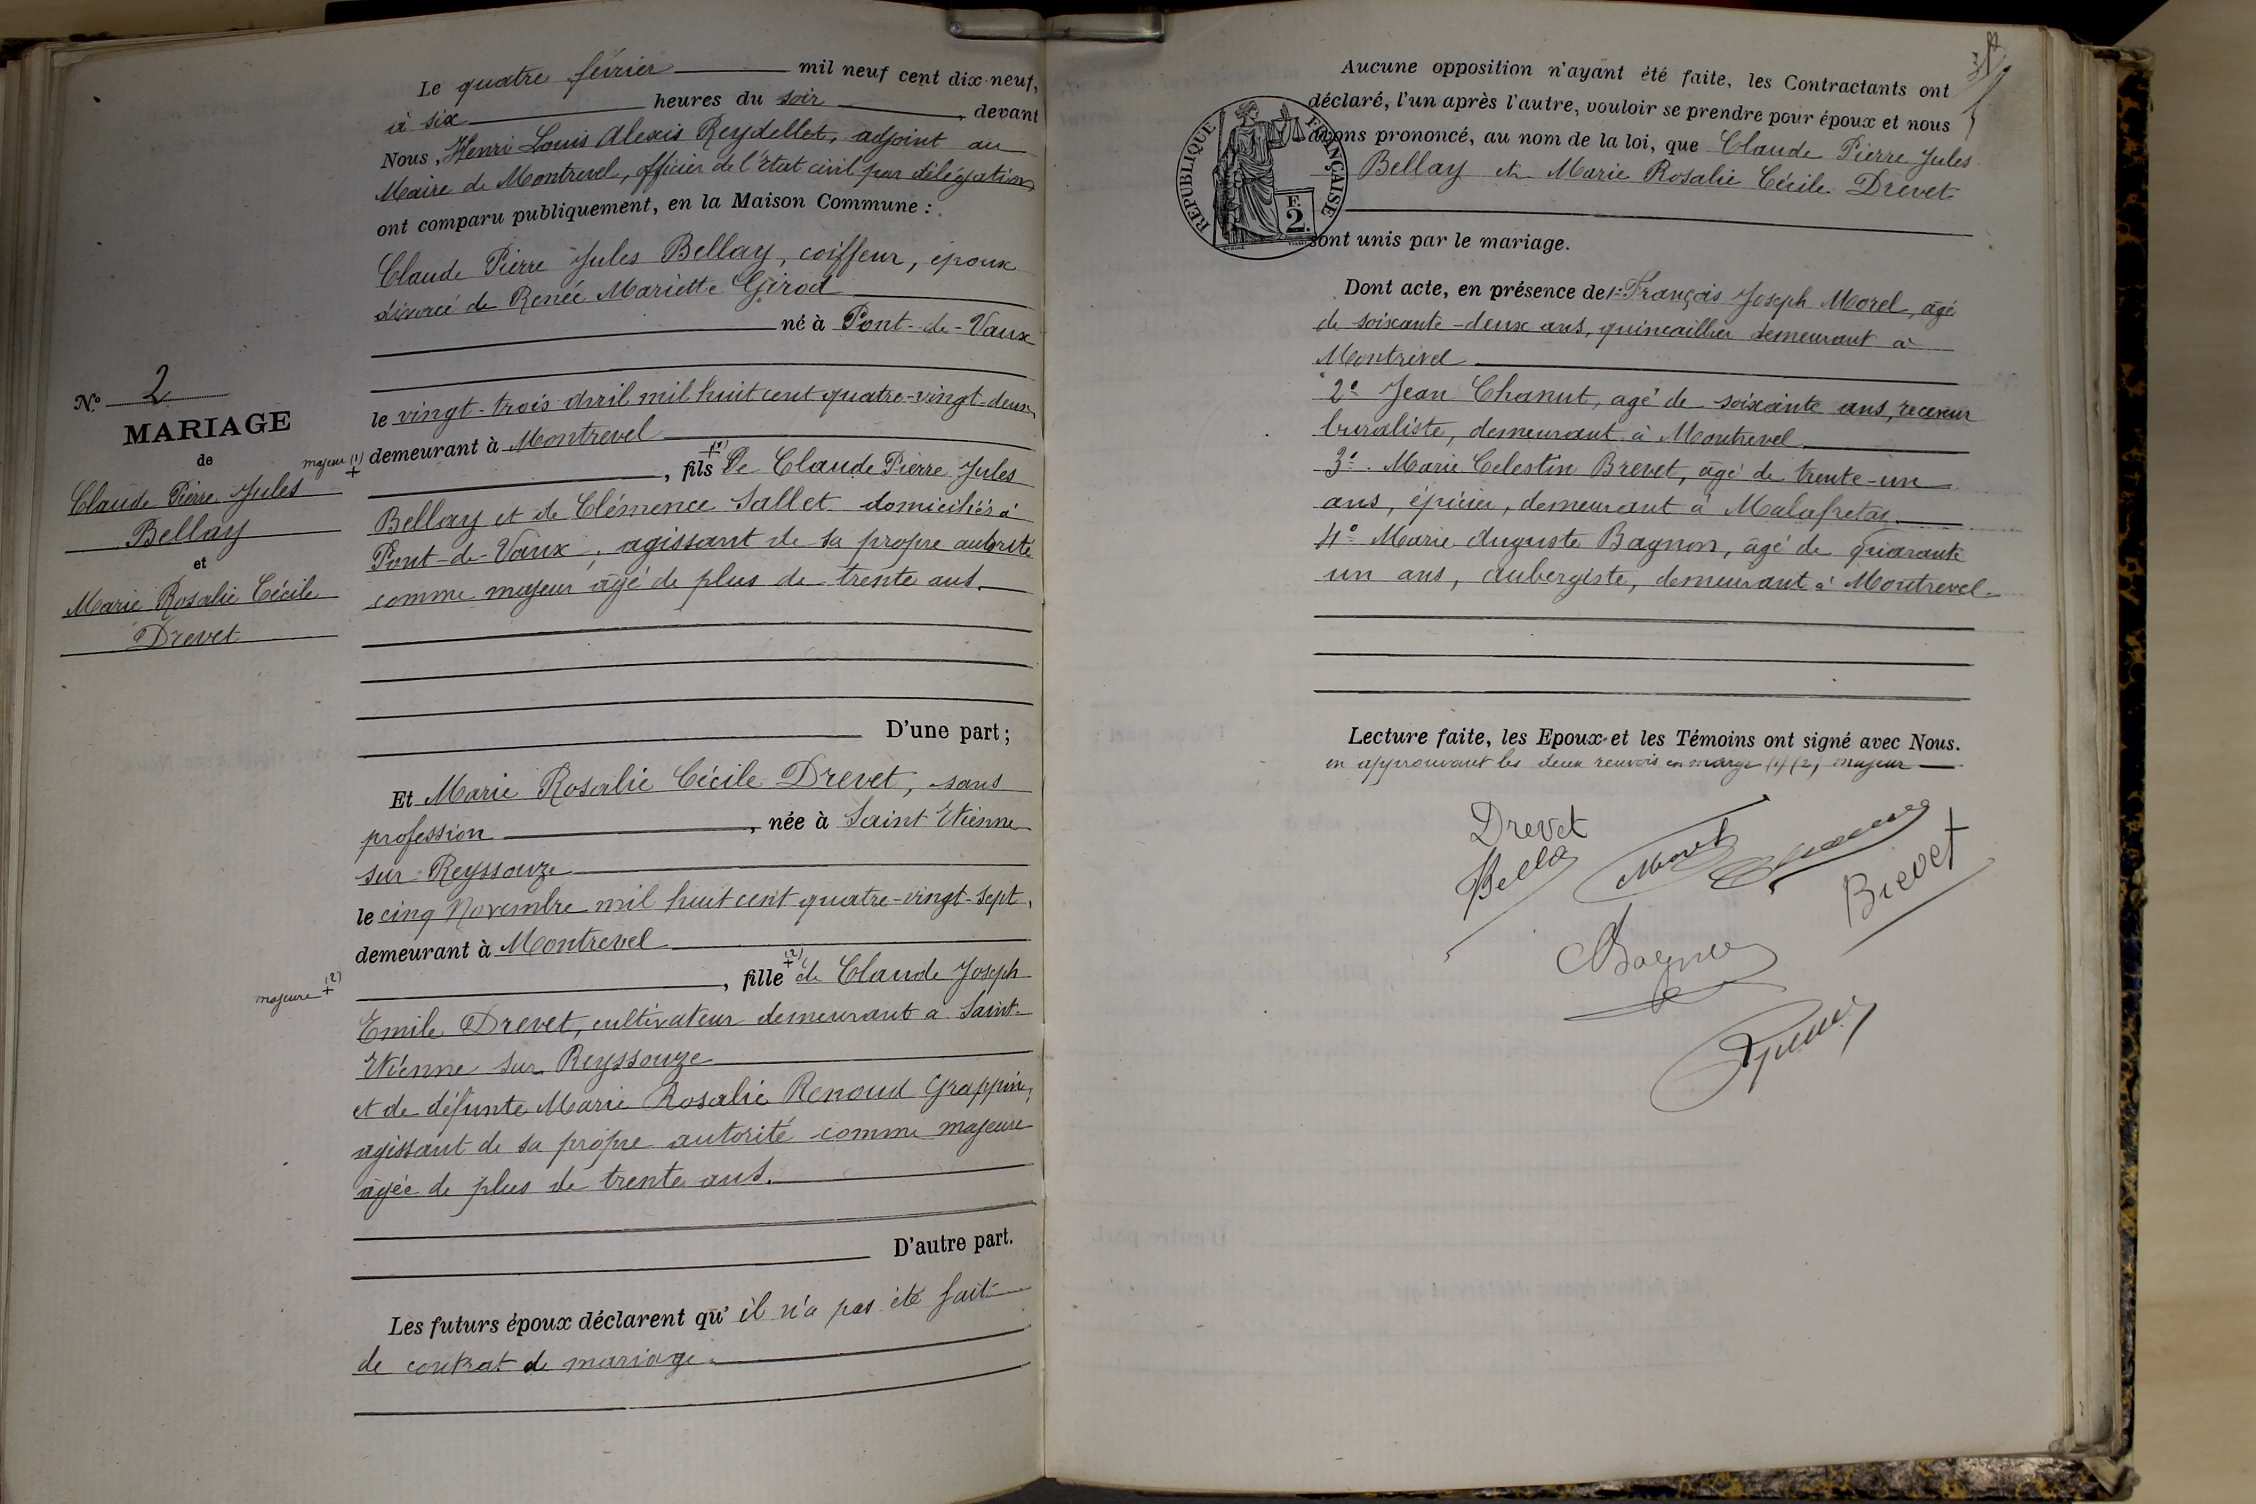 Le quatre février mil neuf cent dix-neuf,
à six heures du soir, devant
Nous, Henri Louis Alexis Reydellet, adjoint au
Maire de Montrevel, officier de l'état civil par délégation
ont comparu publiquement, en la Maison Commune :
Claude Pierre Jules Bellay, coiffeur, époux
divorcé de Renée Mariette Girod
né à Pont-de-Vaux
le vingt-trois avril mil huit cent quatre-vingt-deux
demeurant à Montrevel
, fils (1) + de Claude Pierre Jules
Bellay et de Clémence Sallet domiciliés à
Pont-de-Vaux, agissant de sa propre autorité
comme majeur âgé de plus de trente ans.
D'une part ;
Et Marie Rosalie Cécile Drevet, sans
profession, née à Saint Etienne
sur Reyssouze
le cinq Novembre mil huit cent quatre-vingt-sept,
demeurant à Montrevel
, fille (2) + de Claude Joseph
Emile Drevet, cultivateur demeurant à Saint-
Etienne sur Reyssouze
et de défunte Marie Rosalie Renoud Grappin,
agissant de sa propre autorité comme majeure
âgée de plus de trente ans.
D'autre part.
Les futurs époux déclarent qu'il n'a pas été fait
de contrat de mariage.
N° 2
MARIAGE
de
majeur (1) +
Claude Pierre Jules
Bellay
et
Marie Rosalie Cécile
Drevet
majeure + (2)
Aucune opposition n'ayant été faite, les Contractants ont
déclaré, l'un après l'autre, vouloir se prendre pour époux et nous
avons prononcé, au nom de la loi, que Claude Pierre Jules
Bellay et Marie Rosalie Cécile Drevet
sont unis par le mariage.
RÉPUBLIQUE FRANÇAISE
F.
2.
Dont acte, en présence de 1° François Joseph Morel, âgé
de soixante-deux ans, quincaillier demeurant à
Montrevel
2° Jean Chanut, agé de soixante ans, receveur
buraliste, demeurant à Montrevel
3° Marie Celestin Brevet, âgé de trente-un
ans, épicier, demeurant à Malafretaz
4° Marie Auguste Bagnon, âgé de quarante
un ans, aubergiste, demeurant à Montrevel
Lecture faite, les Epoux et les Témoins ont signé avec Nous.
en approuvant les deux renvois en marge (1) (2) majeur
Drevet
Bellay
Morel
Brevet